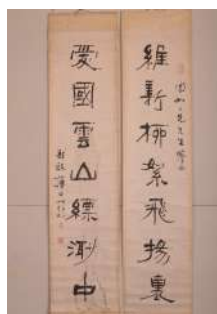 維新柳絮飛揚裏
愛國雲山縹渺中